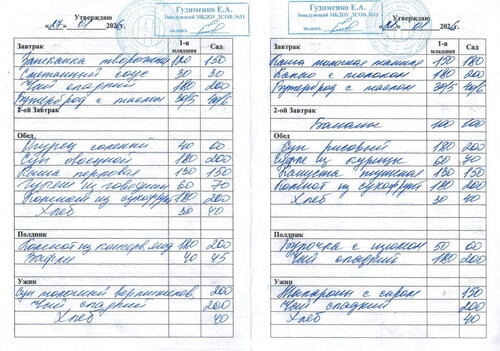 Утверждаю
«27» 01 2026г.
Гудименко Е.А.
Заведующий МБДОУ ДСОВ №31
подпись
Завтрак 1-я младшая Сад
Запеканка творожная 120 150
Сметанный соус 30 30
Чай сладкий 180 200
Бутерброд с маслом
2-ой Завтрак
Обед
Огурец соленый 40 60
Суп овощной 180 200
Каша перловая 130 150
Гуляш из говядины 60 70
Компот из сухофрукт 180 200
Хлеб 30 40
Полдник
Компот из консерв. 180 200
Вафли 40 45
Ужин
Суп молочный 200
Чай сладкий 200
Хлеб 40
Утверждаю
01 2026г.
Гудименко Е.А.
Заведующий МБДОУ ДСОВ №31
подпись
Завтрак 1-я младшая Сад
Каша молочная 150 180
Какао с молоком 180 200
Бутерброд с маслом
2-ой Завтрак
Бананы 100 100
Обед
Суп рисовый 180 200
Суфле из курицы 60 70
Капуста тушеная 130 150
Компот из сухофрукт 180 200
Хлеб 30 40
Полдник
Булочка с 50 60
Чай сладкий 180 200
Ужин
Макароны с сыром 150
Чай сладкий 200
Хлеб 40